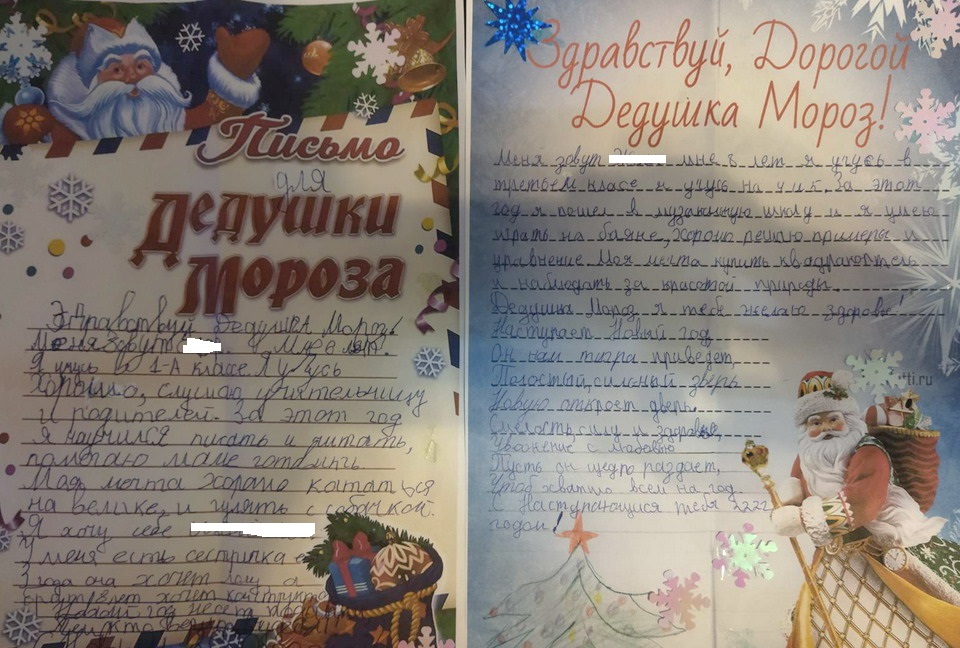 Письмо
для
Дедушки
Мороза
Здравствуй Дедушка Мороз!
Меня зовут
Я учусь во 1-А классе Я учусь
Хорошо, слушаю учительницу
и родителей. За этот год
я научился писать и читать,
помогаю маме готовить.
Моя мечта хорошо кататься
на велике, и гулять с собачкой.
Я хочу себе
У меня есть сестричка
3 года она хочет
хочет конструктор
Новый год несет
Здравствуй, Дорогой
Дедушка Мороз!
Меня зовут мне 8 лет я учусь в
третьем класе и учусь на
За этот
год я пошел в музыкальную школу и я умею
играть на баяне, хорошо решаю примеры и
уравнение Моя мечта купить квадракоптель
и наблюдать за красотой природы.
Дедушка Мороз я тебе желаю здоровье!
Наступает Новый год
Он нам тигра приведет,
Полосатый, сильный зверь
Новую откроет дверь.
Смелость, силу и здоровье,
Уважение с любовью
Пусть он щедро раздает,
Чтоб хватило всем на год.
С Наступающися тебя 2222
годом!
ti.ru